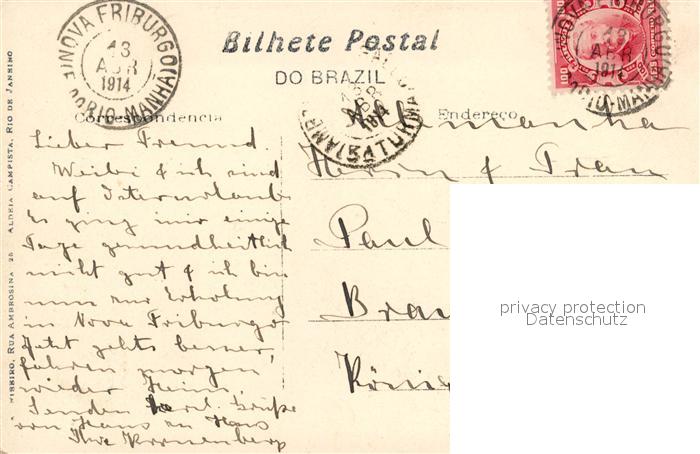 NOVA FRIBURGO (MANHÃ)
13
ABR
1914
E. DO RIO
Bilhete Postal
DO BRAZIL
Correspondencia
Endereço
100
RIBEIRO, RUA AMBROSINA 25 ALDEIA CAMPISTA, RIO DE JANEIRO
Allemanha
Herrn & Frau
Paul
Lieber Freund.
Weibi & ich sind
auf Osterurlaub
Es ging mir einige
Tage gesundheitlich
nicht gut & ich bin
nun zur Erholung
in Nova Friburgo
Jetzt gehts besser,
fahren morgen
wieder heim.
Senden herzl. Grüße
von Haus zu Haus
Ihre Kronenberg
privacy protection
Datenschutz